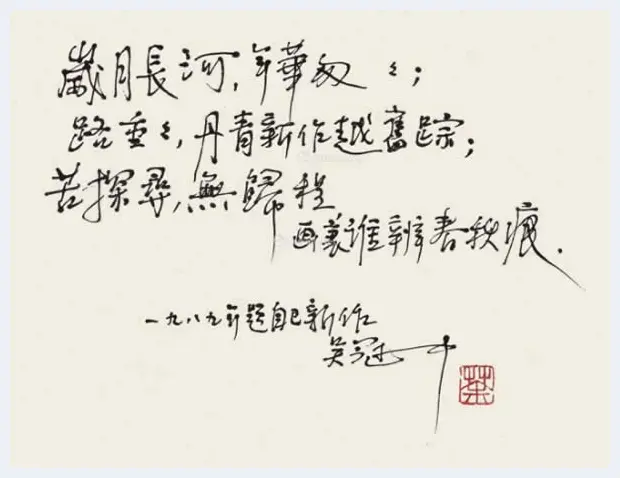 歲月長河,年華匆〻;
路重〻,丹青新作越舊踪;
苦探尋,無歸程
画裏谁辨春秋痕.
一九八九年题自己新作
吴冠中
荼